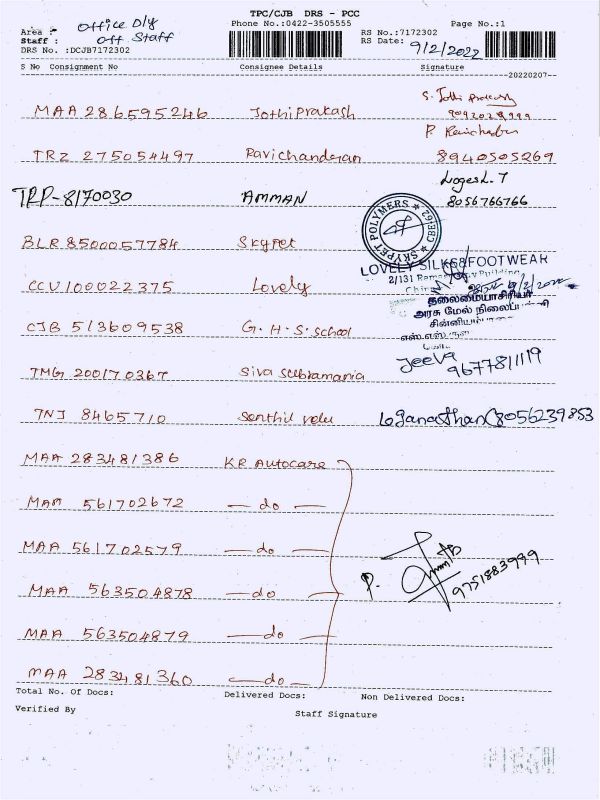 TPC/CJB DRS - PCC
Phone No.:0422-3505555 Page No.:1
Area : Office Dly
Staff : Off Staff
RS No.:7172302
RS Date: 9/2/2022
DRS No. :DCJB7172302
S No Consignment No Consignee Details Signature
--20220207--
MAA 286595246 Jothi Prakash S. Jothi Prakash
P. Ravichandran
TRZ 275054497 Ravichanderan 8940505269
Logesh. T
TRP-8170030 AMMAN 8056766766
SKYPET POLYMERS CBE-62
BLR 8500057784 Skypet
LOVELY SILKS & FOOTWEAR
2/131
CCV 100022375 Lovely
தலைமையாசிரியர்
அரசு மேல் நிலைப்
CJB 513609538 G. H. S. School
சின்னியம்
எஸ்.எஸ்.
Jeeva
TMG 200170367 Siva Subramania 9677811119
TNJ 8465710 Senthil velu Loganathan 8056239853
MAA 283481386 KR Autocare
MAA 561702672 — do —
MAA 561702579 — do —
P. 9751883999
MAA 563504878 — do —
MAA 563504879 — do —
MAA 283481360 — do —
Total No. Of Docs: Delivered Docs: Non Delivered Docs:
Verified By Staff Signature